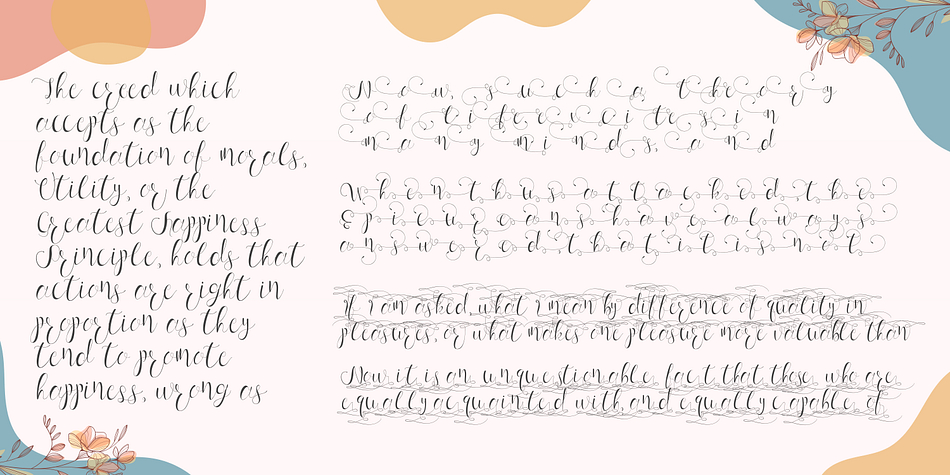 The creed which
accepts as the
foundation of morals,
Utility, or the
Greatest Happiness
Principle, holds that
actions are right in
proportion as they
tend to promote
happiness, wrong as
Now, such a theory
of life excites in
many minds, and
When thus attacked, the
Epicureans have always
answered, that it is not
If I am asked, what I mean by difference of quality in
pleasures, or what makes one pleasure more valuable than
Now it is an unquestionable fact that those who are
equally acquainted with, and equally capable of